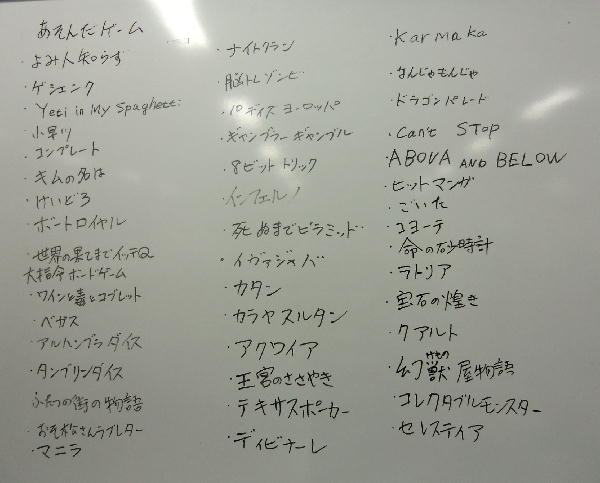 あそんだゲーム
・よみ人知らず
・ゲシェンク
・Yeti in My Spaghetti
・小早川
・コンプレート
・キムの名は
・けいどろ
・ボートロイヤル
・世界の果てまでイッテQ
大指令ボードゲーム
・ワインと毒とゴブレット
・ベガス
・アルハンブラダイス
・タンブリンダイス
ふたつの街の物語
・おそ松さんラブレター
・マニラ
・ナイトクラン
・脳トレゾンビ
・10デイズヨーロッパ
・ギャンブラーギャンブル
・8ビットトリック
・インフェルノ
・死ぬまでピラミッド
・イヴァジャバ
・カタン
・カラヤスルタン
・アクワイア
・王宮のささやき
・テキサスポーカー
・ディビナーレ
・Karmaka
・なんじゃもんじゃ
・ドラゴンパレード
・Can't STOP
・ABOVA AND BELOW
・ヒットマンガ
・ごいた
・コヨーテ
・命の砂時計
・ラトリア
・宝石の煌き
・クアルト
・幻獣屋物語
・コレクタブルモンスター
・セレスティア